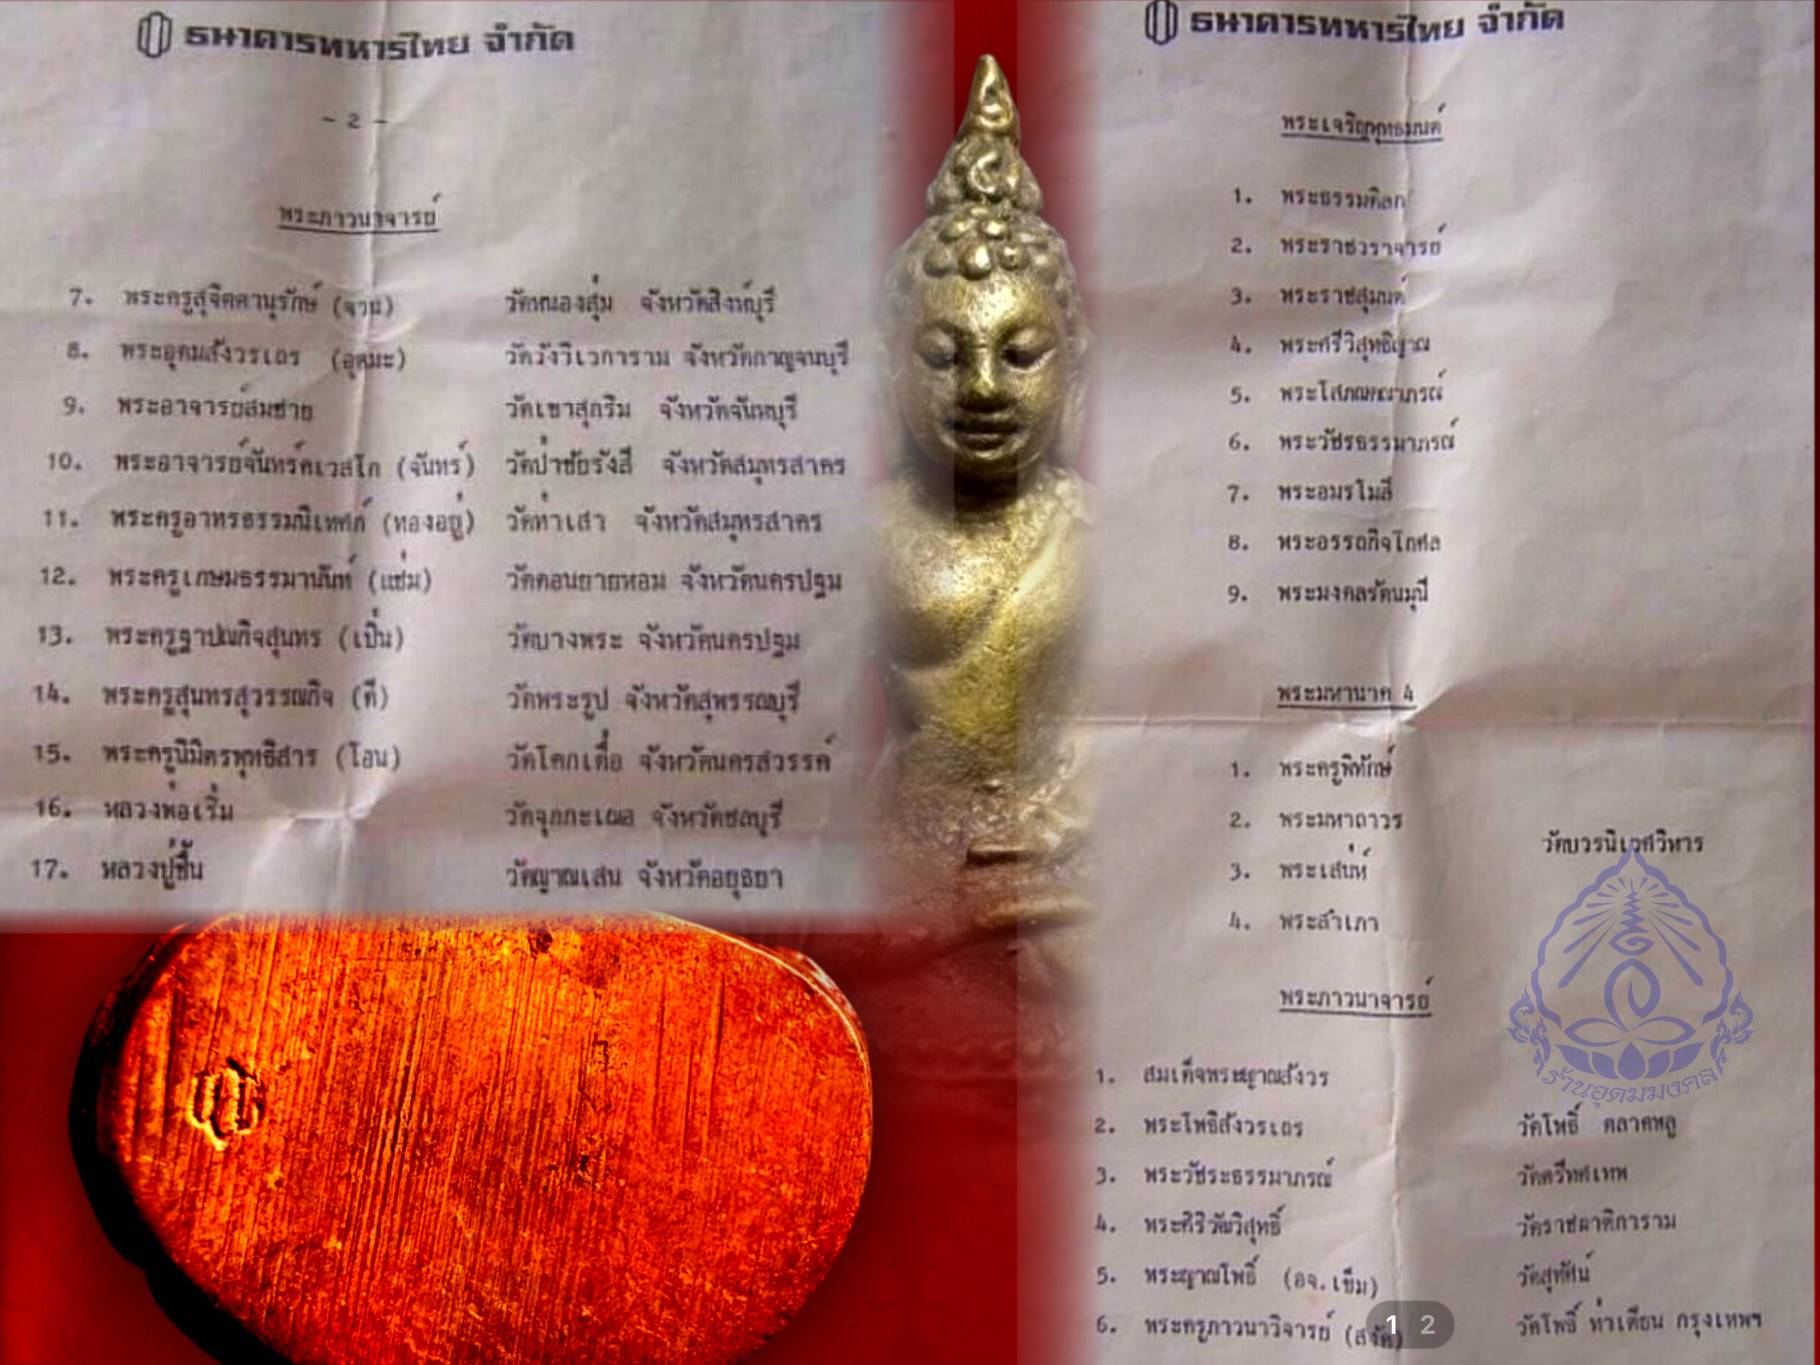 ธนาคารทหารไทย จำกัด
พระเจริญพุทธมนต์
1. พระธรรมดิลก
2. พระราชวราจารย์
3. พระราชสุมนต์
4. พระศรีวิสุทธิญาณ
5. พระโสภณคณาภรณ์
6. พระวัชรธรรมาภรณ์
7. พระอมรโมลี
8. พระอรรถกิจโกศล
9. พระมงคลรัตนมุนี
พระมหานาค 4
1. พระครูพิทักษ์
2. พระมหาถาวร
วัดบวรนิเวศวิหาร
3. พระเสน่ห์
4. พระสำเภา
พระภาวนาจารย์
1. สมเด็จพระญาณสังวร
2. พระโพธิสังวรเถร วัดโพธิ์ ตลาดพลู
3. พระวัชระธรรมาภรณ์ วัดตรีทศเทพ
4. พระศิริวัฒวิสุทธิ์ วัดราชผาติการาม
5. พระญาณโพธิ์ (อจ.เข็ม) วัดสุทัศน์
6. พระครูภาวนาวิจารย์ (สงัด) วัดโพธิ์ ท่าเตียน กรุงเทพฯ
ร้านอุดมมงคล
1 2
ธนาคารทหารไทย จำกัด
- 2 -
พระภาวนาจารย์
7. พระครูสุจิตตานุรักษ์ (จวน) วัดหนองสุ่ม จังหวัดสิงห์บุรี
8. พระอุดมสังวรเถร (อุตมะ) วัดวังวิเวการาม จังหวัดกาญจนบุรี
9. พระอาจารย์สมชาย วัดเขาสุกริม จังหวัดจันทบุรี
10. พระอาจารย์จันทร์คเวสโก (จันทร์) วัดป่าชัยรังสี จังหวัดสมุทรสาคร
11. พระครูอาทรธรรมนิเทศก์ (ทองอยู่) วัดท่าเสา จังหวัดสมุทรสาคร
12. พระครูเกษมธรรมานันท์ (แช่ม) วัดดอนยายหอม จังหวัดนครปฐม
13. พระครูฐาปณกิจสุนทร (เปิ่น) วัดบางพระ จังหวัดนครปฐม
14. พระครูสุนทรสุวรรณกิจ (ดี) วัดพระรูป จังหวัดสุพรรณบุรี
15. พระครูนิมิตรพุทธิสาร (โอน) วัดโคกเดื่อ จังหวัดนครสวรรค์
16. หลวงพ่อเริ่ม วัดจุกกะเฌอ จังหวัดชลบุรี
17. หลวงปู่ชื้น วัดญาณเสน จังหวัดอยุธยา